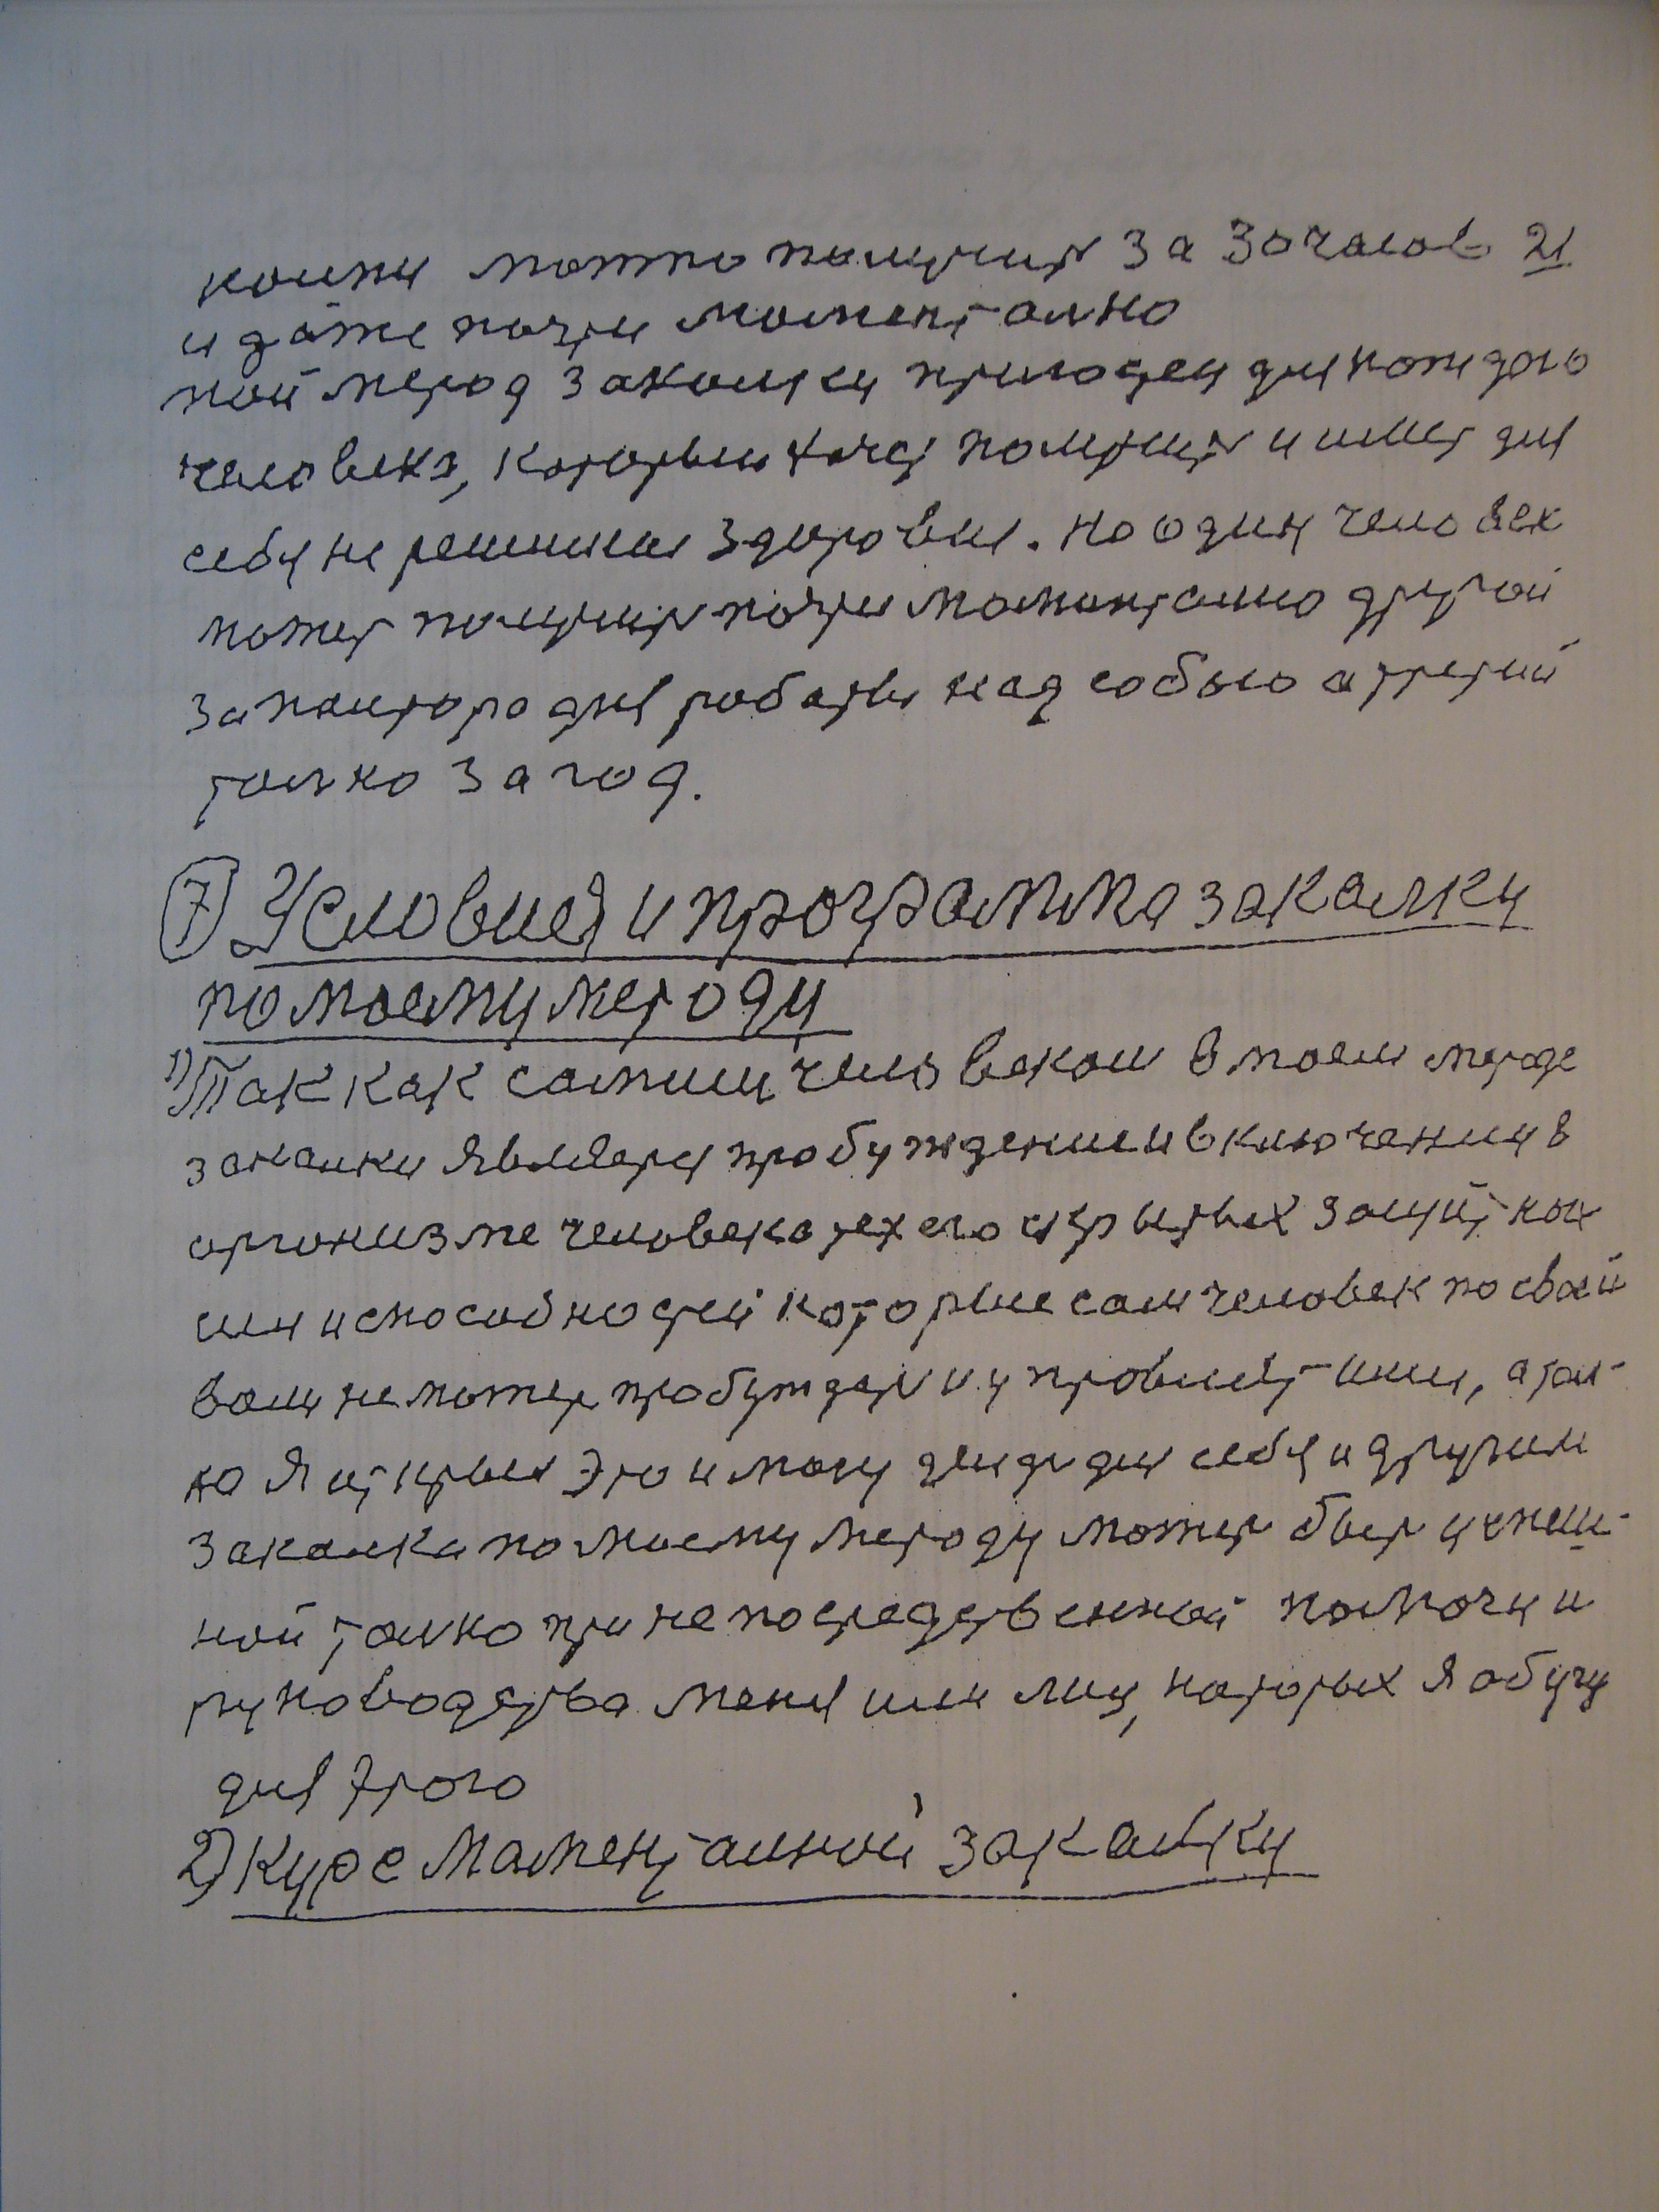 можно получит за 30 часов 21
и даже почти моментално
мой метод закалки пригоден для каждого
человека, который хочет получит и имет для
себя не решиные здоровия. но один человек
может получит почти моментално другой
за полтора дня работы над собою а третий
толко за год.
7) Условией и программа закалки
по моему методу
1) Так как самими человеком в моем методе
закалки является пробуждении и включения в
организме человека тех его скрытых защитных
сил и способностей которые сам человек по своей
воли не может пробуждат и управлят ими, а тол-
ко Я открыл это и могу для себя и другим
закалка по моему методу может быт успеш-
ной толко при непосредственной помочи и
руководства меня или лиц, которых Я обучу
для этого
2) Курс маменталной закалки